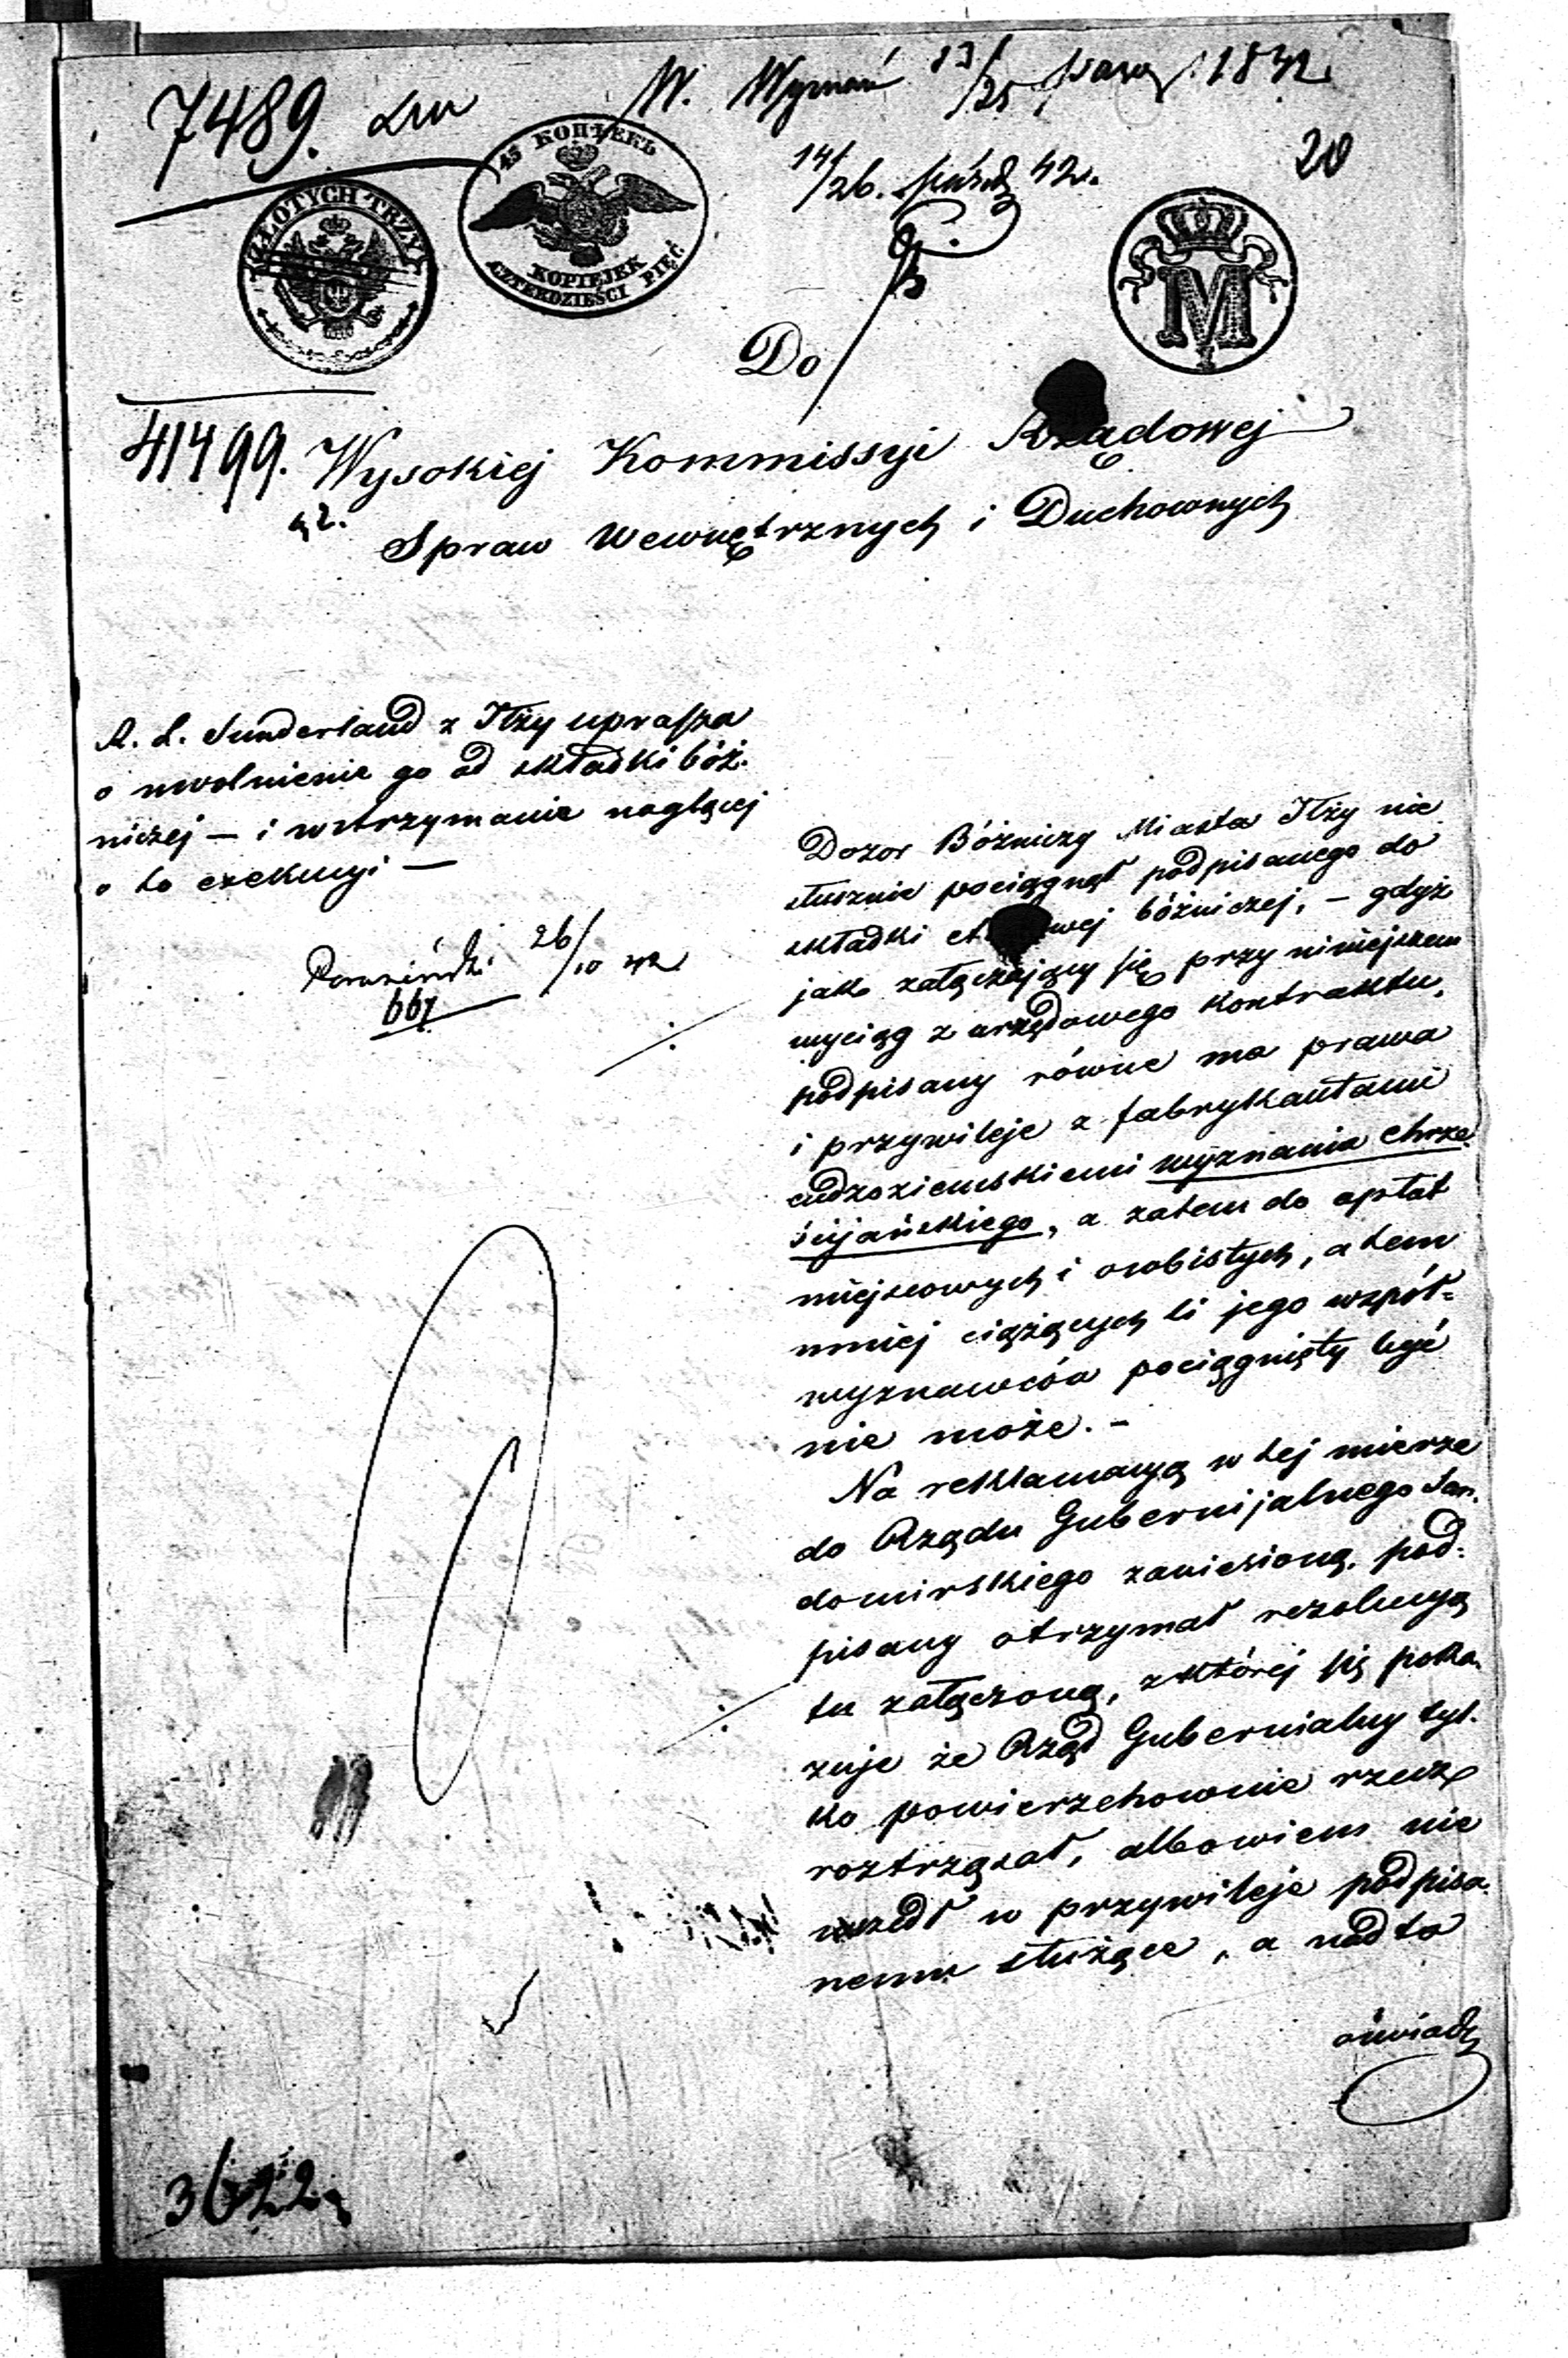 7489.
W. Wyznań 13/25 Paźdz. 1842
14/26. Paźdz 42.
20
45 КОПѢЕКЪ
KOPIEJEK
CZTERDZIEŚCI PIĘĆ
ZŁOTYCH TRZY
M
I
Do
41499. Wysokiej Kommissyi Rządowej
Spraw Wewnętrznych i Duchownych
A. L. Sunderland z Iłży uprasza
o uwolnienie go od składki bóż-
niczej — i wstrzymanie naglącej
o to exekucyi —
26/10 42
667
Dozor Bóżniczy Miasta Iłży nie
słusznie pociągnął podpisanego do
składki bóżniczej, – gdyż
jak załączający się przy niniejszem
wyciąg z urzędowego kontraktu,
podpisany równe ma prawa
i przywileje z fabrykantami
cudzoziemskiemi wyznania chrze
ścijańskiego, a zatem do opłat
miejscowych i osobistych, a tem
mniej ciążących li jego współ=
wyznawców pociągnięty być
nie może. –
Na reklamacyą w tej mierze
do Rządu Gubernijalnego San.
domirskiego zaniesioną, pod-
pisany otrzymał rezolucyą
tu załączoną, z której się poka
zuje że Rząd Gubernialny tyl.
ko powierzchownie rzecz
roztrząsał, albowiem nie
wszedł w przywileje podpisa
nemu służące, a nadto
oświadcz
3622